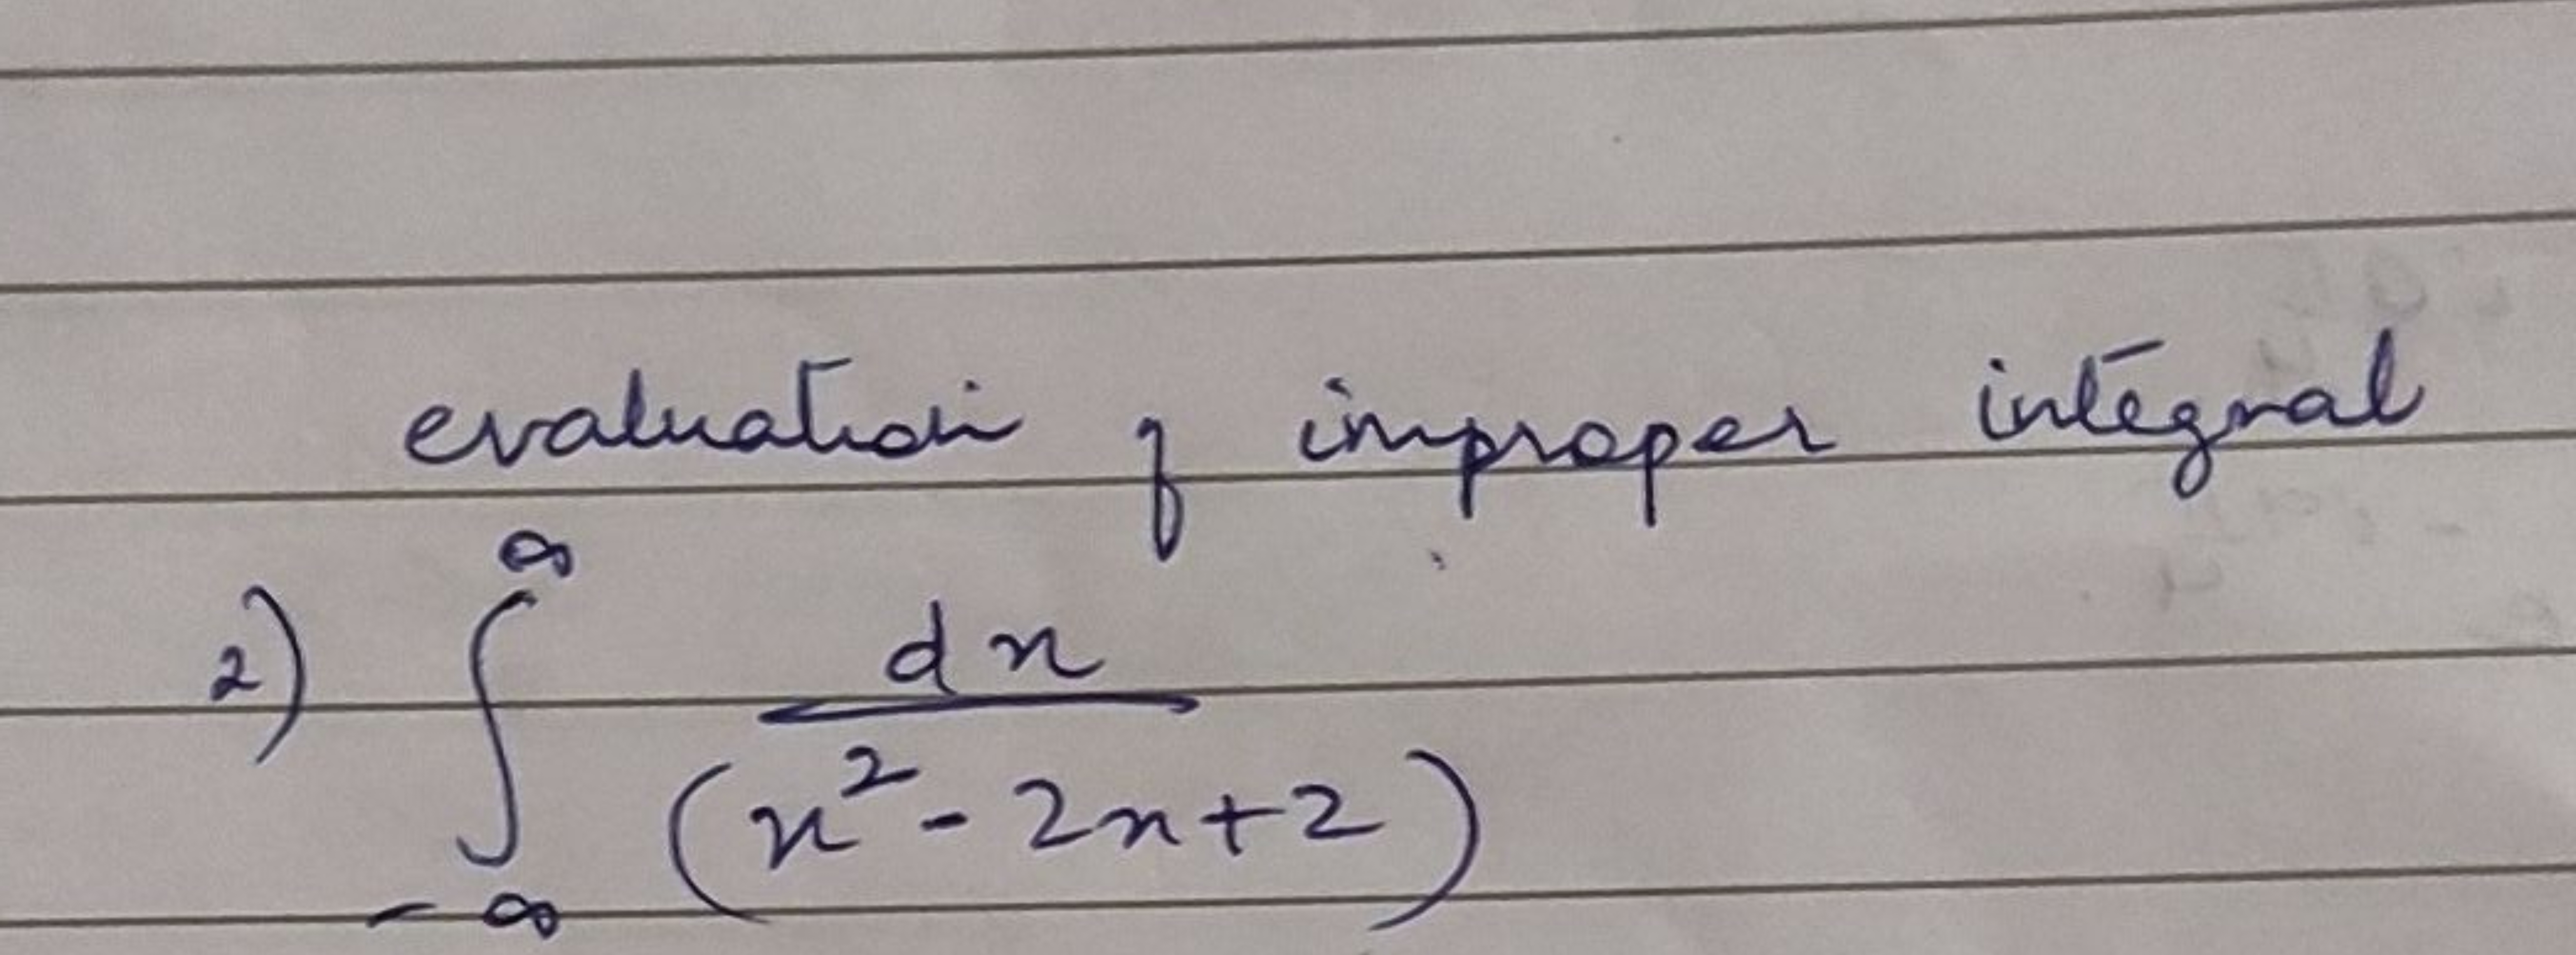 evaluation of improper integral
2) ∫_{-∞}^{∞} dx / (x² - 2x + 2)